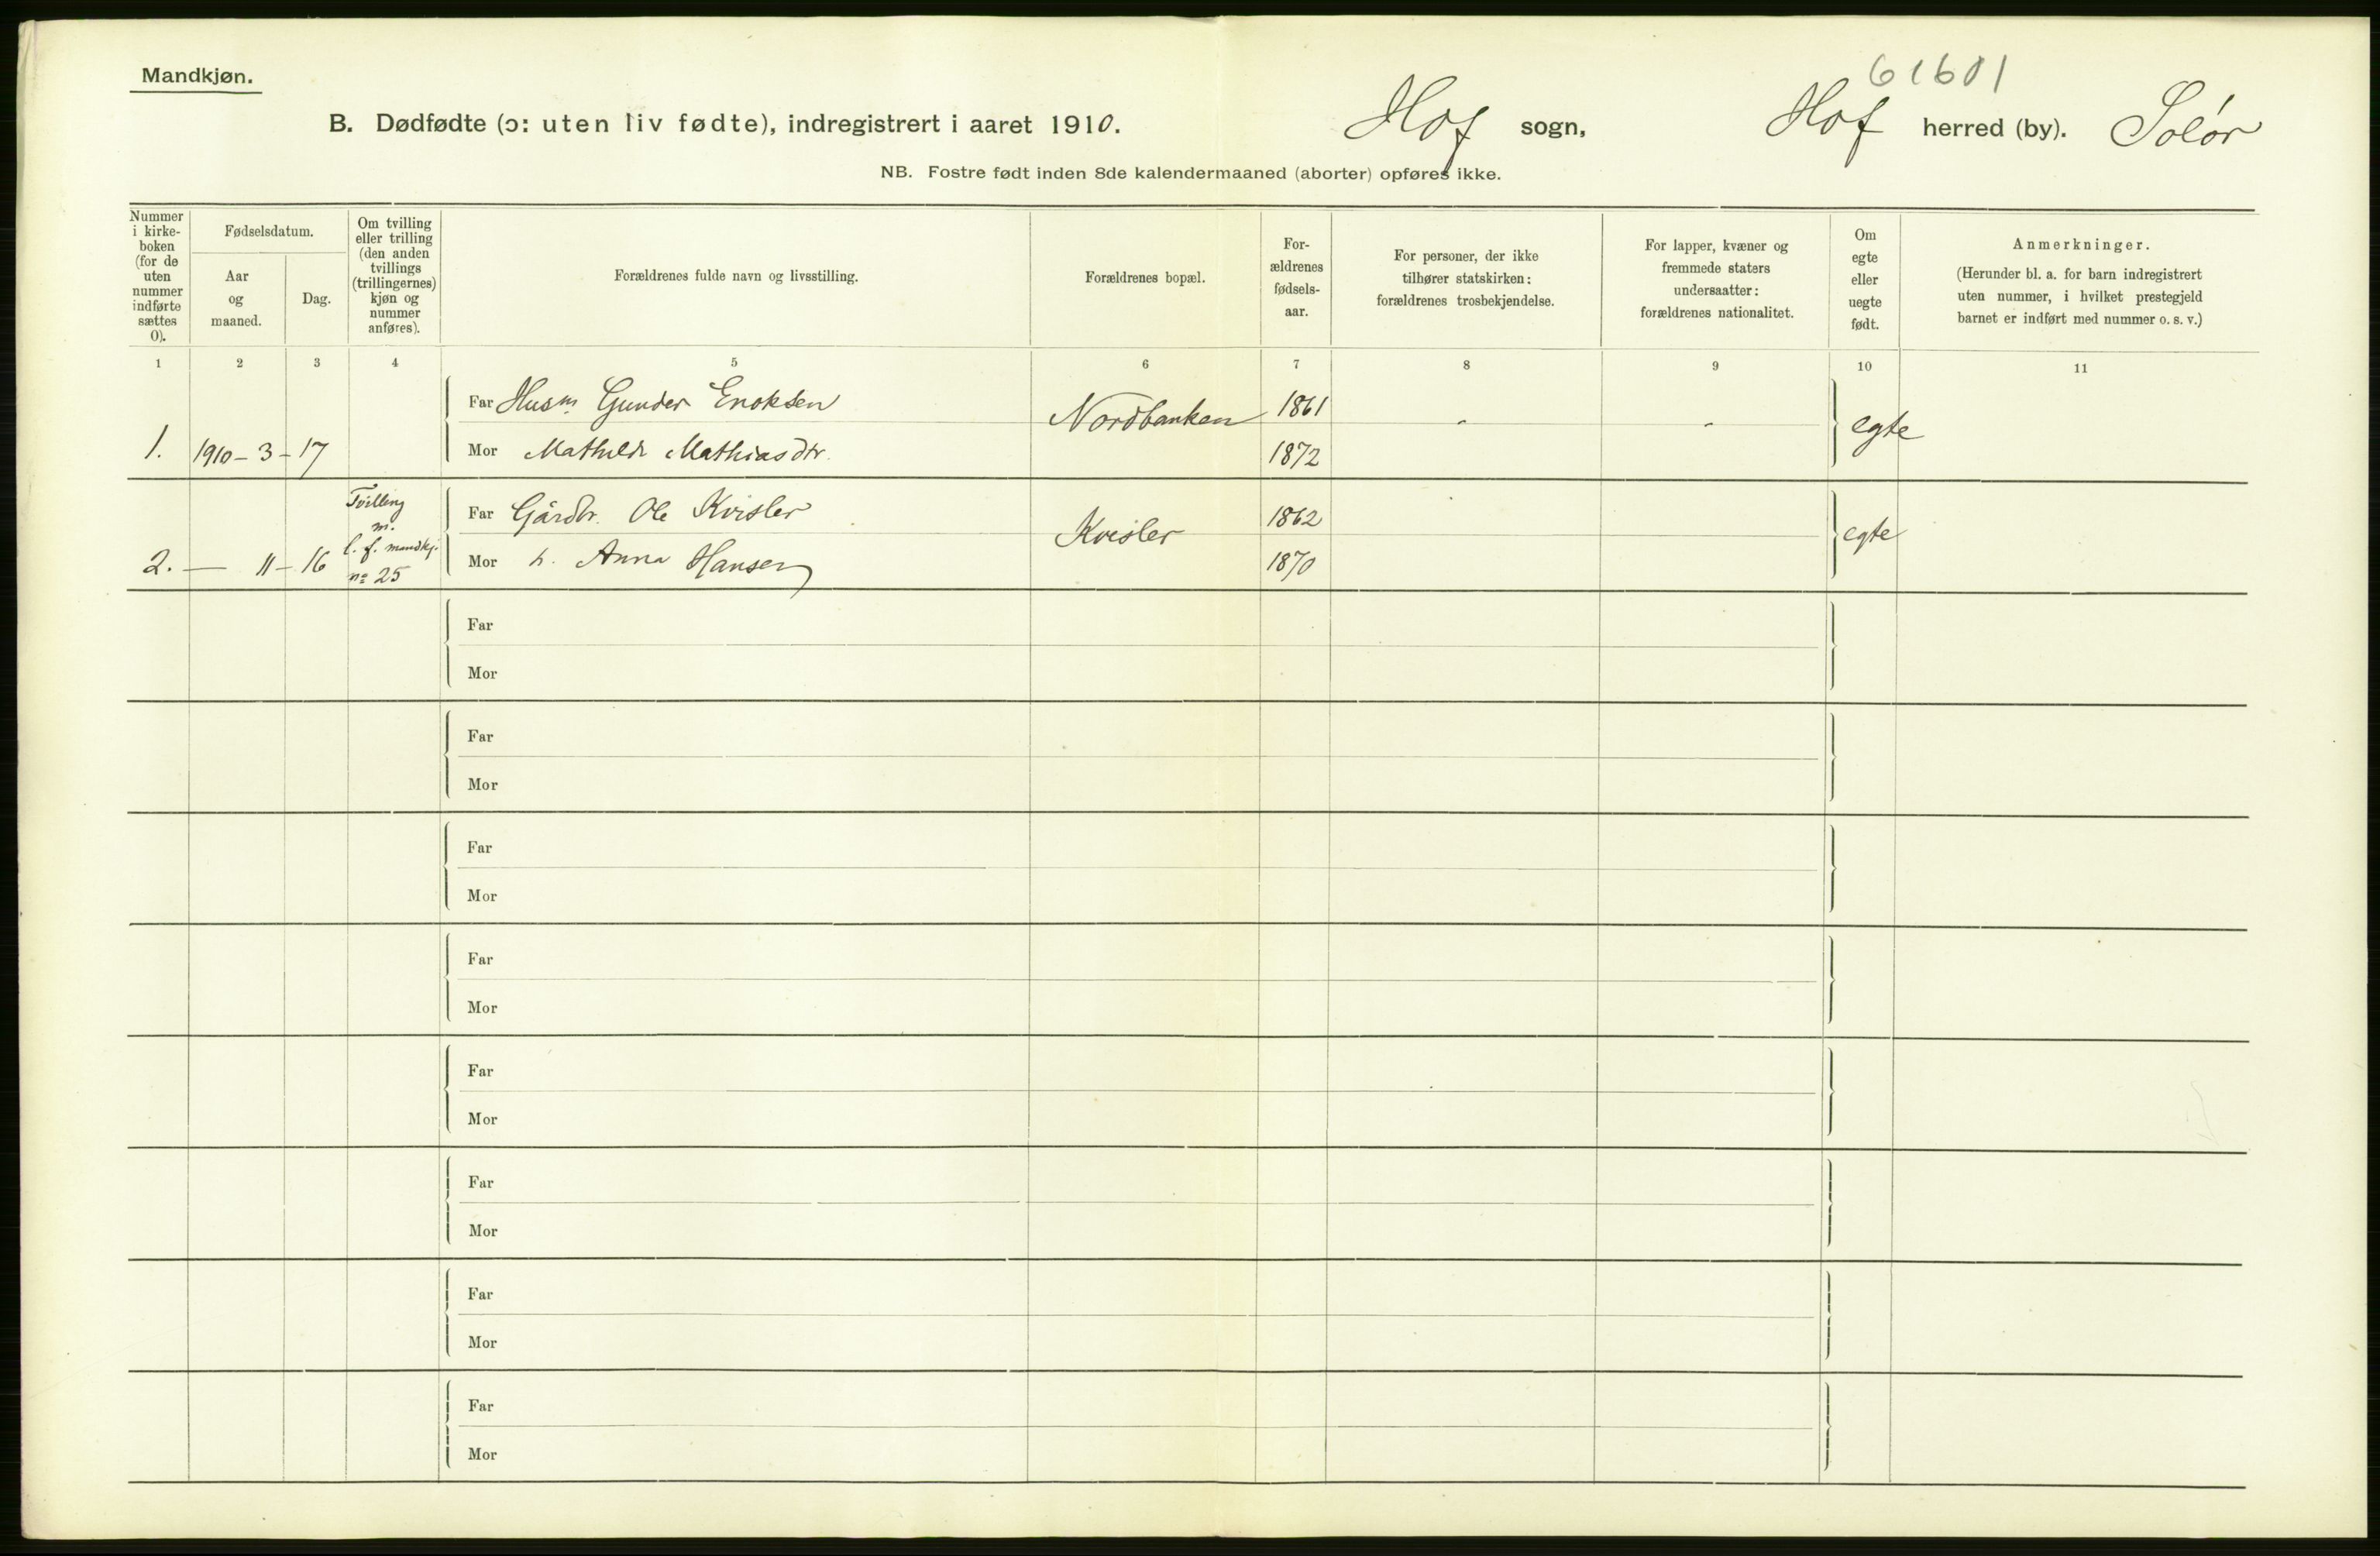 Mandkjøn.
61601
B. Dødfødte (ɔ: uten liv fødte), indregistrert i aaret 1910. Hof sogn, Hof herred (by). Solør
NB. Fostre født inden 8de kalendermaaned (aborter) opføres ikke.
Nummer i kirke-boken (for de uten nummer indførte sættes 0).
Fødselsdatum.
Aar og maaned.
Dag.
Om tvilling eller trilling (den anden tvillings (trillingernes) kjøn og nummer anføres).
Forældrenes fulde navn og livsstilling.
Forældrenes bopæl.
For-ældrenes fødsels-aar.
For personer, der ikke tilhører statskirken: forældrenes trosbekjendelse.
For lapper, kvæner og fremmede staters undersaatter: forældrenes nationalitet.
Om egte eller uegte født.
Anmerkninger.
(Herunder bl. a. for barn indregistrert uten nummer, i hvilket prestegjeld barnet er indført med nummer o. s. v.)
1 2 3 4 5 6 7 8 9 10 11
Far Husm. Gunder Enoksen Nordbanken 1861 - - egte
1. 1910 - 3 - 17 Mor Mathilde Mathiasdtr. 1872
Tvilling
m.
l. f. mandkj.
no 25
Far Gårdbr. Ole Kvisler Kvisler 1862 egte
2. — 11 - 16 Mor h. Anna Hansen 1870
Far
Mor
Far
Mor
Far
Mor
Far
Mor
Far
Mor
Far
Mor
Far
Mor
Far
Mor